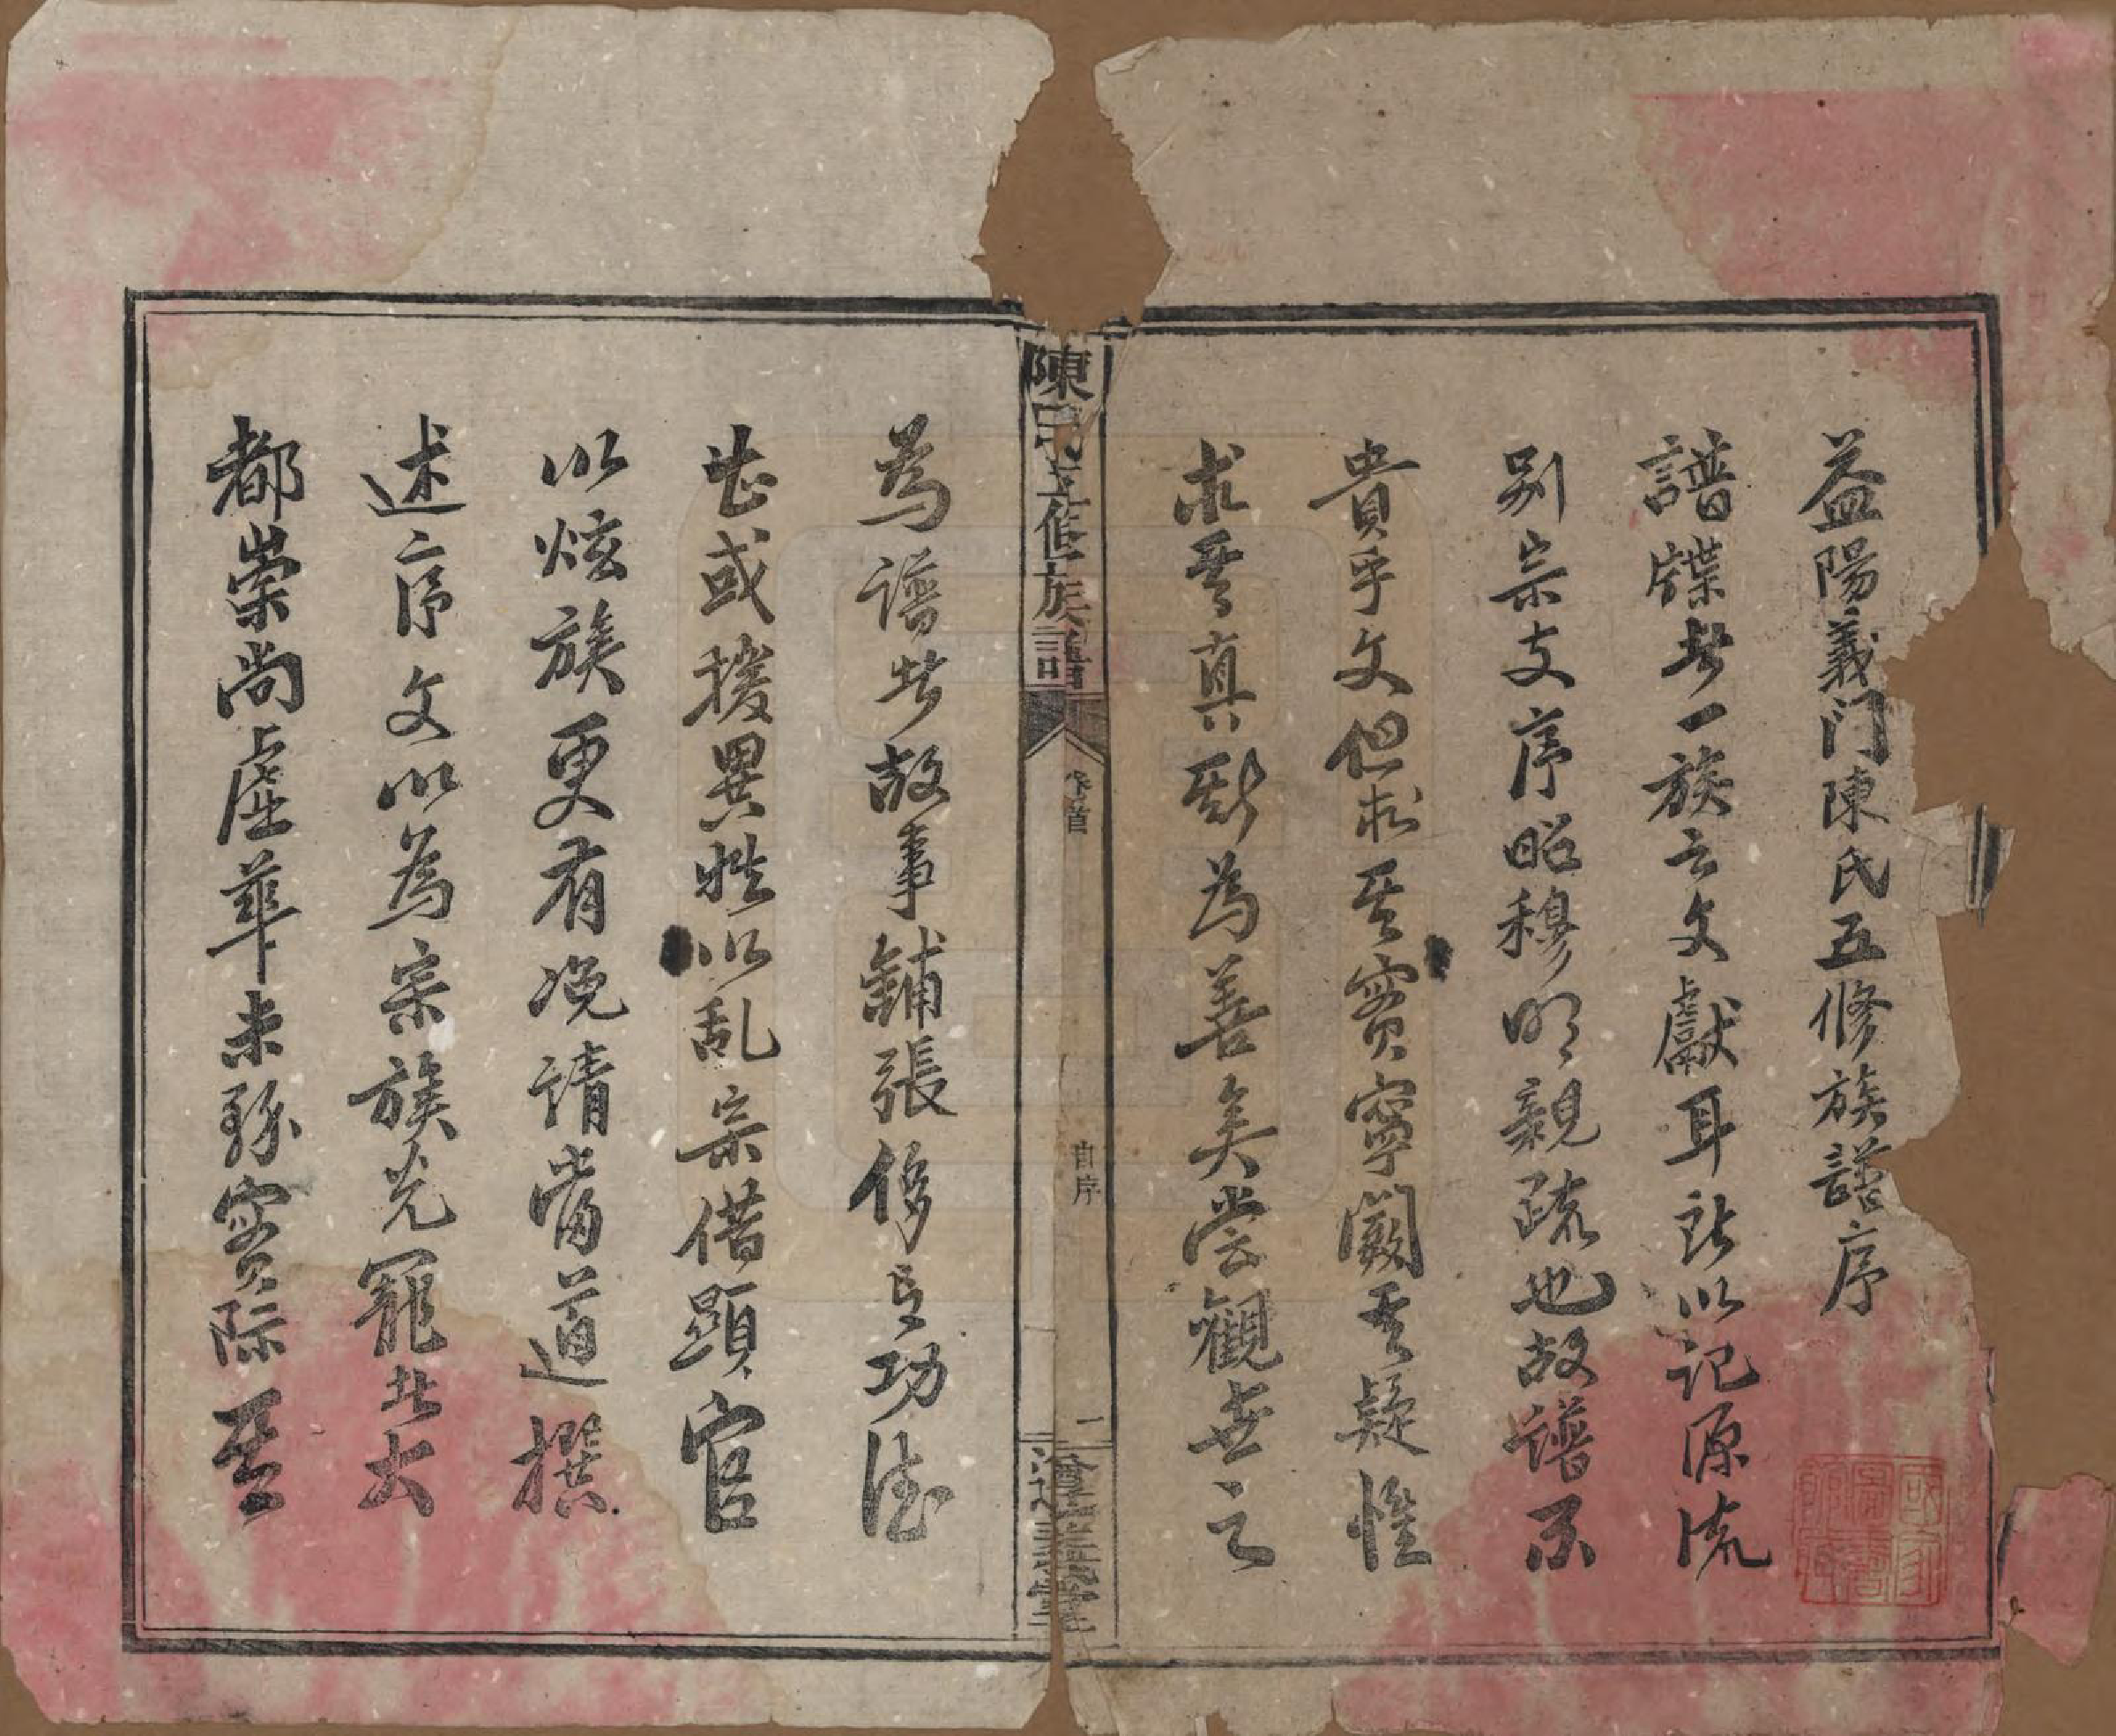 益陽義门陳氏五修族譜序
譜牒者一族之文獻耳所以记源流
别宗支序昭穆明親疏也故譜不
贵乎文但求其實寧闕其疑惟
求其真斯為善矣嘗觀世之
陳氏五修族譜
卷首
自序
一
義堂
為譜者故事鋪張侈言功德
甚或援異姓以乱宗借顕官
以炫族更有浼請當道撰
述序文以為宗族光寵此大
都崇尚虛華未務实际甚